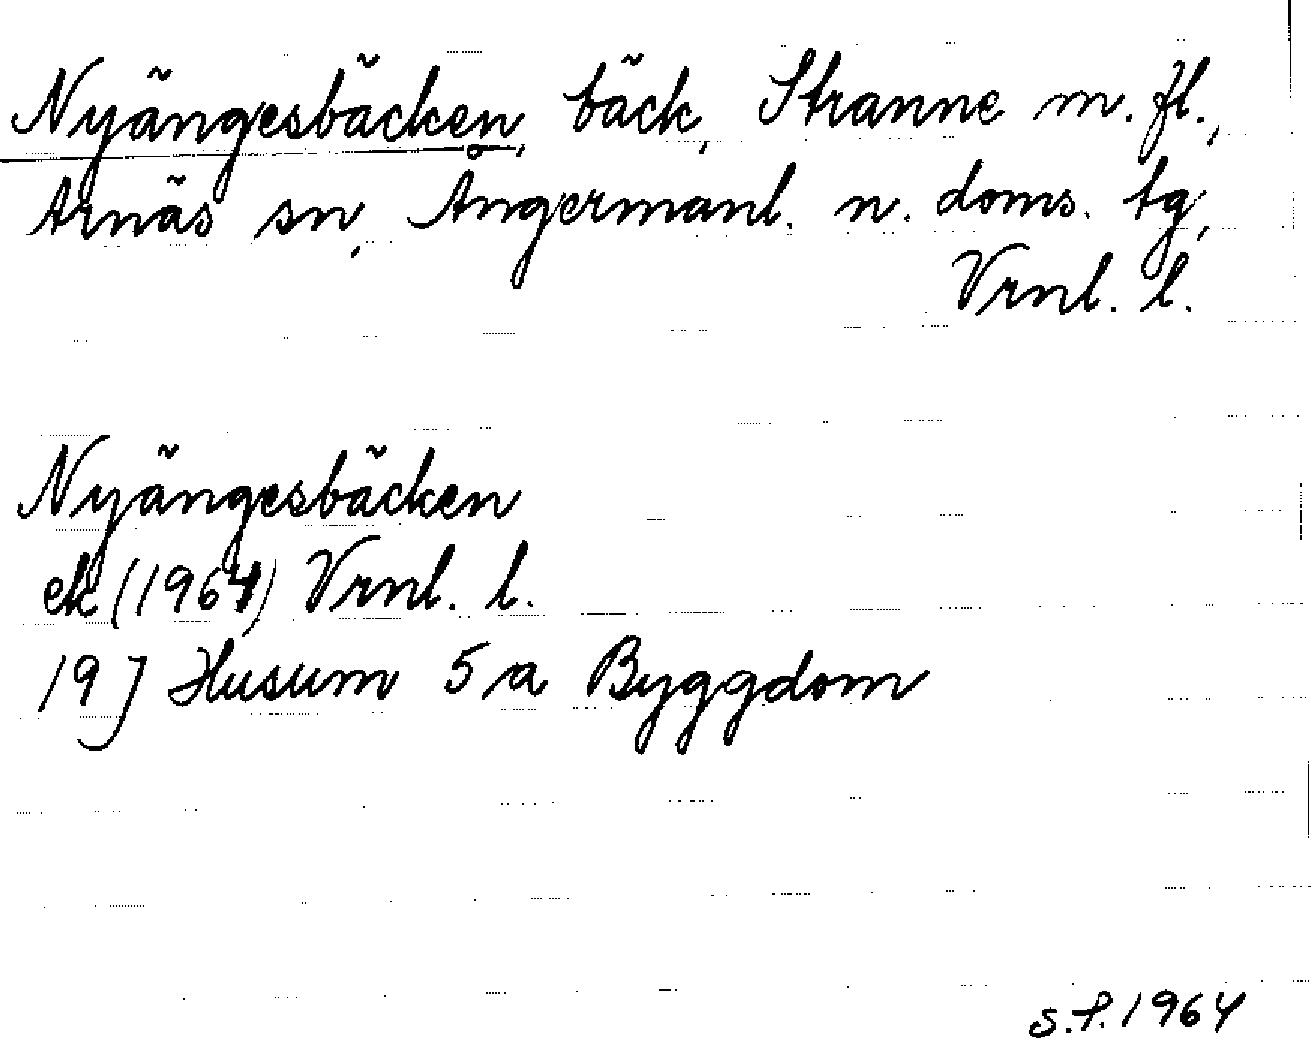 Nyängesbäcken, bäck, Stranne m. fl.,
Arnäs sn, Ångermanl. n. doms. tg,
Vrnl. l.
Nyängesbäcken
ek (1961) Vrnl. l.
19 J Husum 5 a Byggdom
S.P. 1964